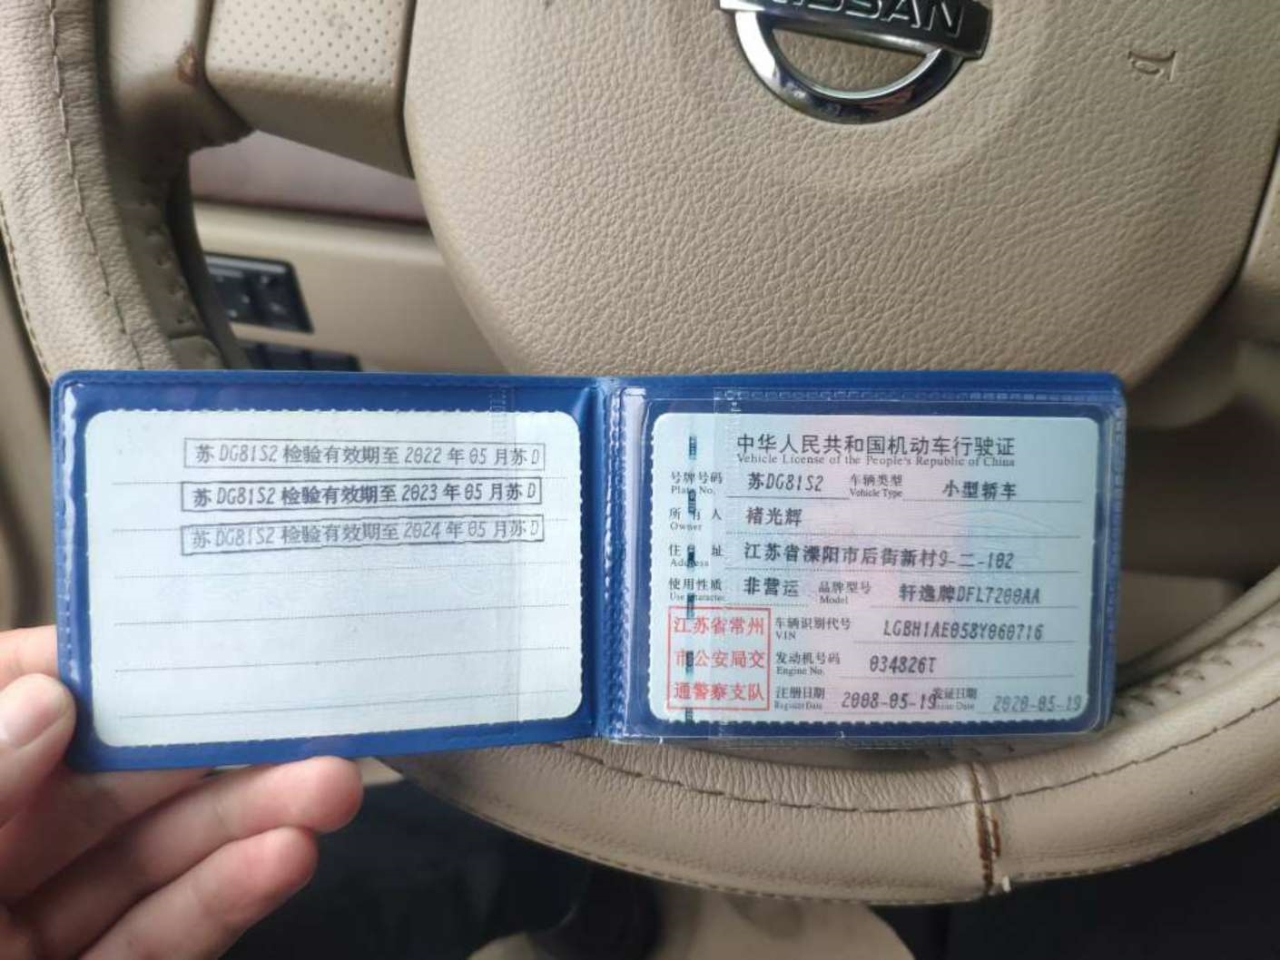 NISSAN
苏DG81S2检验有效期至2022年05月苏D
苏DG81S2检验有效期至2023年05月苏D
苏DG81S2检验有效期至2024年05月苏D
中华人民共和国机动车行驶证
Vehicle License of the People's Republic of China
号牌号码 苏DG81S2 车辆类型 小型轿车
Plate No. Vehicle Type
所有人 褚光辉
Owner
住址 江苏省溧阳市后街新村9-二-102
Address
使用性质 非营运 品牌型号 轩逸牌DFL7200AA
Use Character Model
江苏省常州
市公安局交
通警察支队
车辆识别代号 LGBH1AE058Y060716
VIN
发动机号码 034826T
Engine No.
注册日期 2008-05-19 发证日期 2020-05-19
Register Date Issue Date